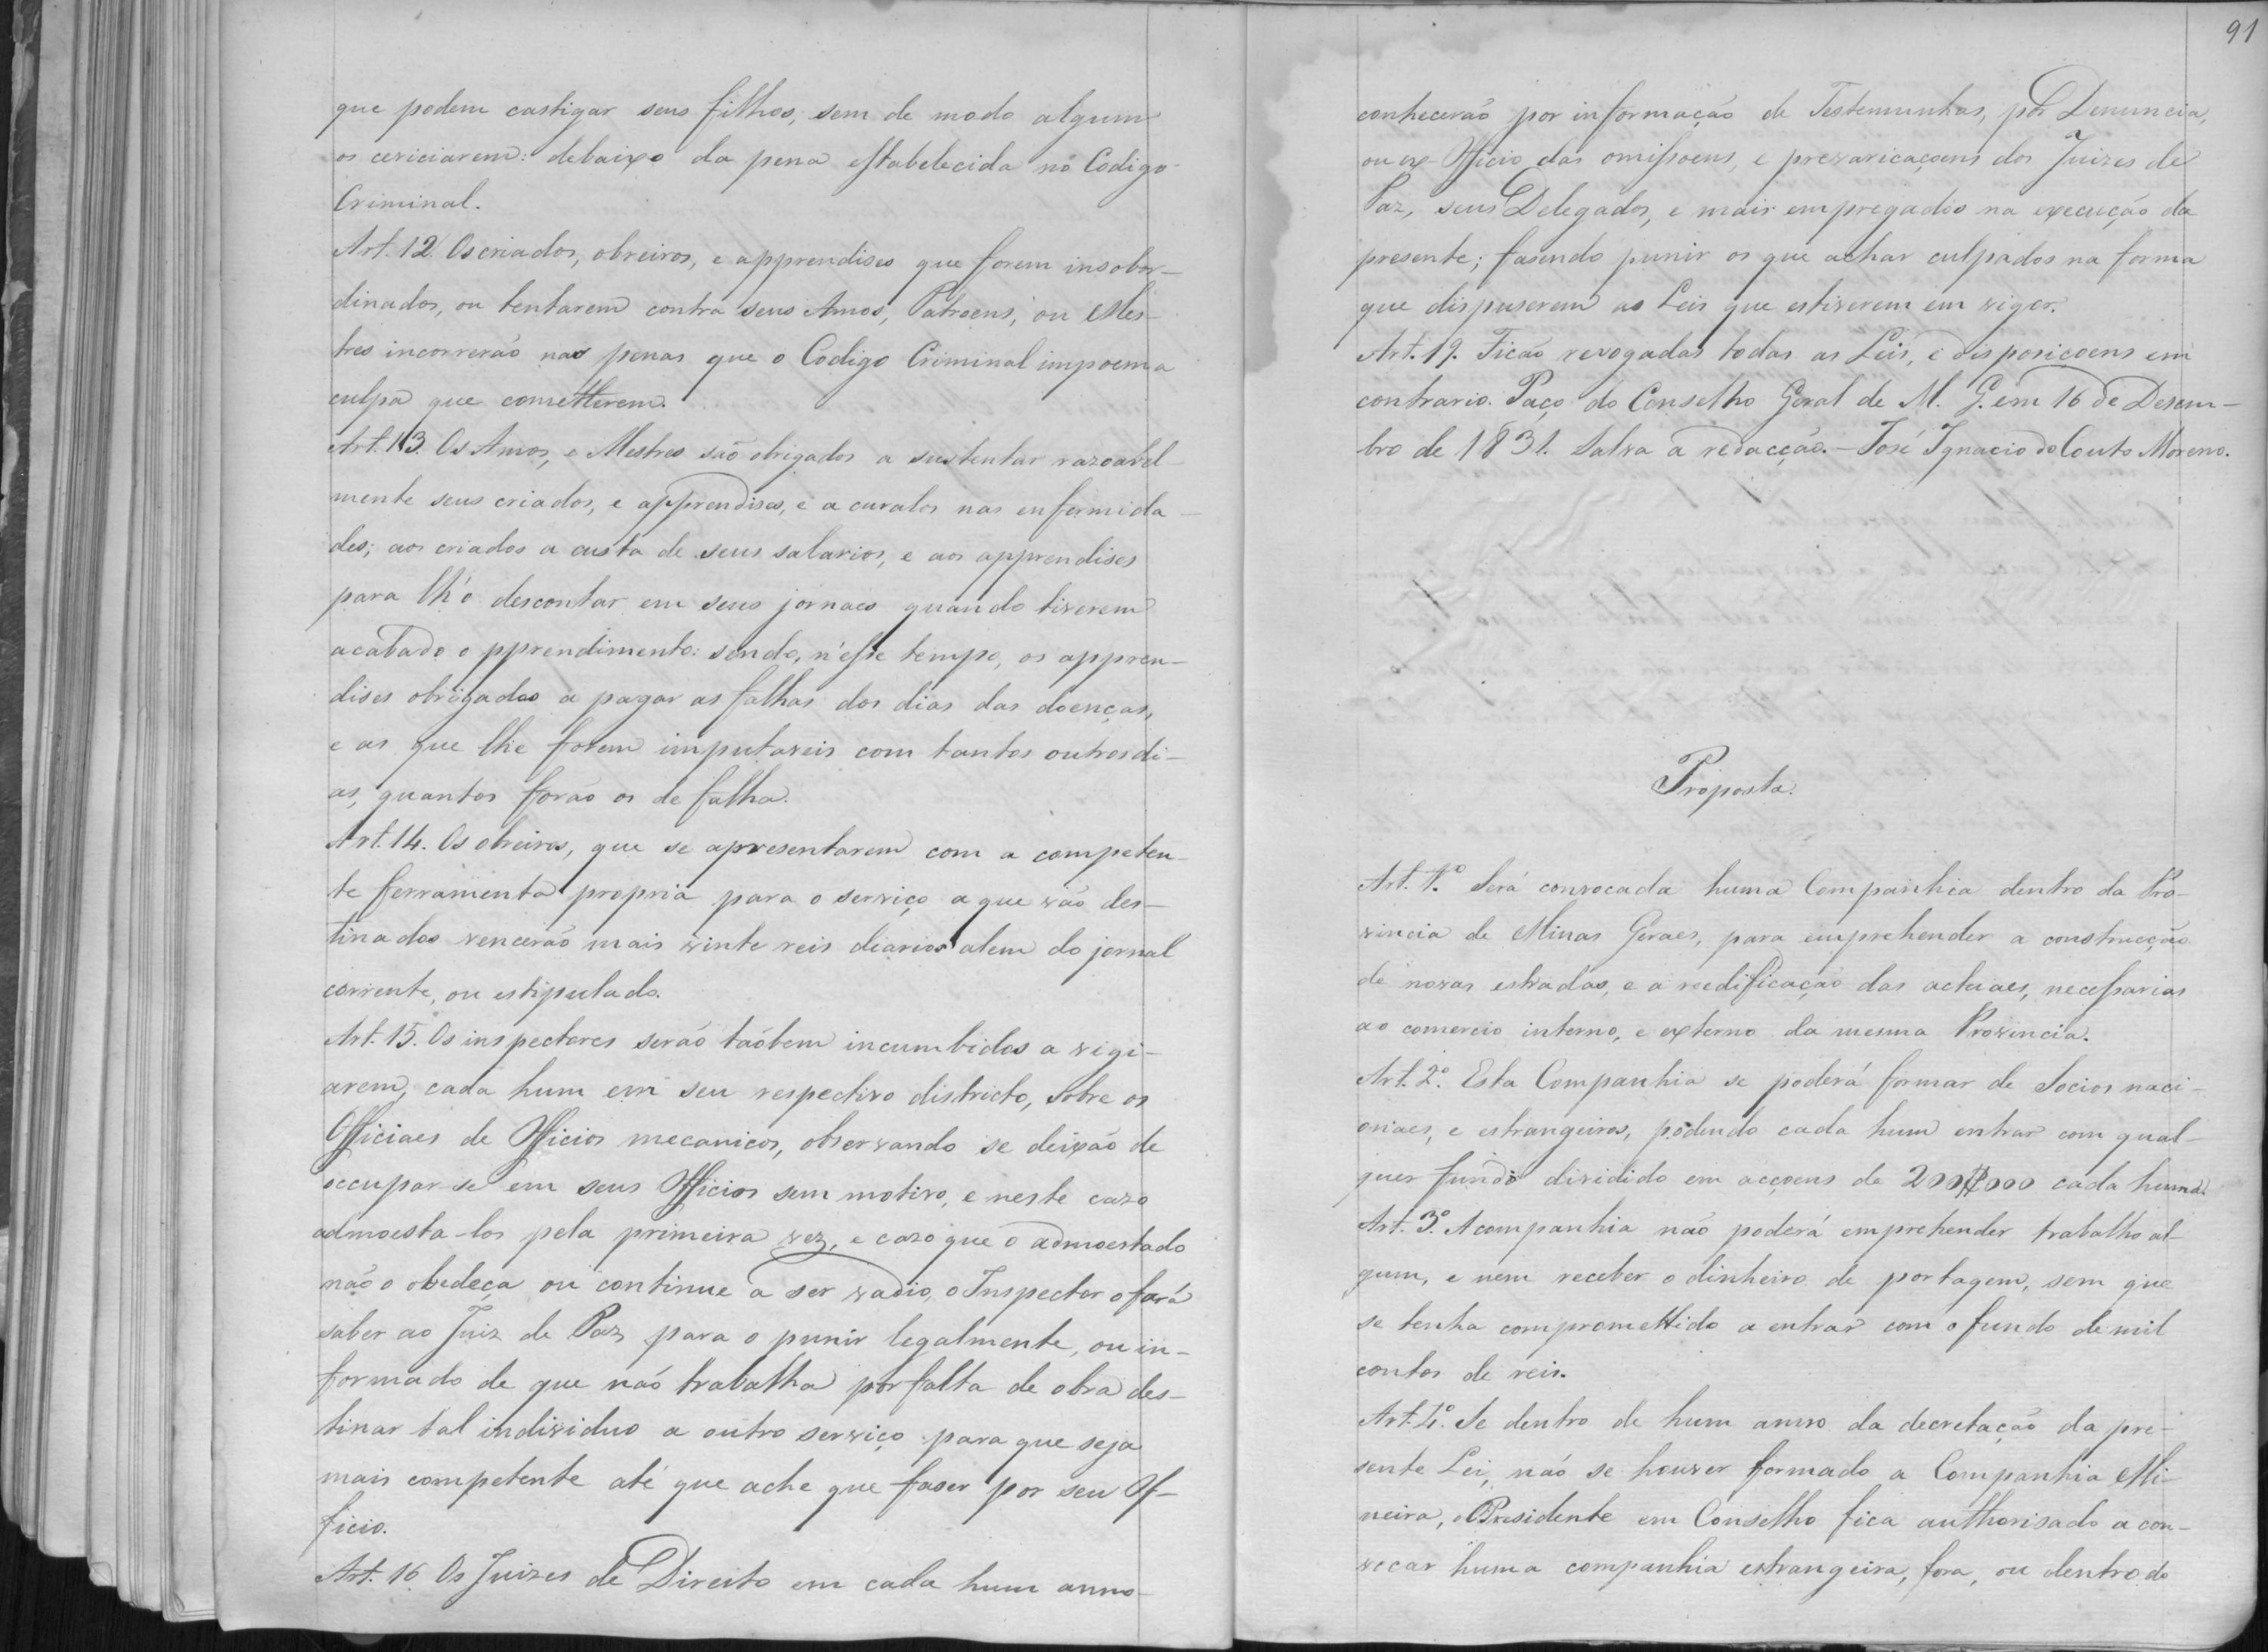 que podem castigar seus filhos, sem de modo algum
os ceviciarem: debaixo da pena estabelecida no Codigo
Criminal.
Art. 12. Os criados, obreiros, e apprendises que forem insobor-
dinados, ou tentarem contra seus Amos, Patroens, ou Mes-
tres incorrerão nas penas que o Codigo Criminal impoem a
culpa que cometterem.
Art. 13. Os Amos, e Mestres são obrigados a sustentar razoavel-
mente seus criados, e apprendises, e a curalos nas enfermida-
des; aos criados a custa de seus salarios, e aos apprendises
para lh'o descontar em seus jornaes quando tiverem
acabado o pprendimento: sendo, n'esse tempo, os appren-
dises obrigados a pagar as falhas dos dias das doenças,
e as que lhe forem imputaveis com tantos outros di-
as, quantos forão os de falha.
Art. 14. Os obreiros, que se apresentarem com a competen-
te ferramenta propria para o serviço a que vão des-
tinados vencerão mais vinte reis diarios alem do jornal
corrente, ou estipulado.
Art. 15. Os inspectores serão tãobem incumbidos a vigi-
arem, cada hum em seu respectivo districto, sobre os
Officiaes de Officios mecanicos, observando se deixão de
occupar-se em seus Officios sem motivo, e neste cazo
admoesta-los pela primeira vez, e cazo que o admoestado
não o obedeça ou continue a ser vadio, o Inspector o fará
saber ao Juiz de Paz para o punir legalmente, ou in-
formado de que não trabalha por falta de obra des-
tinar tal individuo a outro serviço para que seja
mais competente até que ache que faser por seu Of-
ficio.
Art. 16 Os Juizes de Direito em cada hum anno
91
conhecerão por informação de Testemunhas, por Denuncia,
ou ex-Officio das omissoens, e prevaricaçoens dos Juizes de
Paz, seus Delegados, e mais empregados na execução da
presente; fasendo punir os que achar culpados na forma
que dispuserem as Leis que estiverem em vigor.
Art. 19. Ficão revogadas todas as Leis, e disposiçoens em
contrario. Paço do Conselho Geral de M. G. em 16 de Desem-
bro de 1831. Salva a redacção. - José Ignacio do Couto Moreno.
Proposta.
Art. 1.º Será convocada huma Companhia dentro da Pro-
vincia de Minas Geraes, para emprehender a construcção
de novas estradas, e a reedificação das actuaes, necessarias
ao comercio interno, e externo da mesma Provincia.
Art. 2.º Esta Companhia se poderá formar de Socios naci-
onaes, e estrangeiros, podendo cada hum entrar com qual-
quer fundo dividido em acçoens de 200$000 cada huma.
Art. 3.º A companhia não poderá emprehender trabalho al-
gum, e nem receber o dinheiro de portagem, sem que
se tenha compromettido a entrar com o fundo de mil
contos de reis.
Art. 4.º Se dentro de hum anno da decretação da pre-
sente Lei, não se houver formado a Companhia Mi-
neira, o Presidente em Conselho fica authorisado a con-
vocar huma companhia estrangeira, fora, ou dentro do